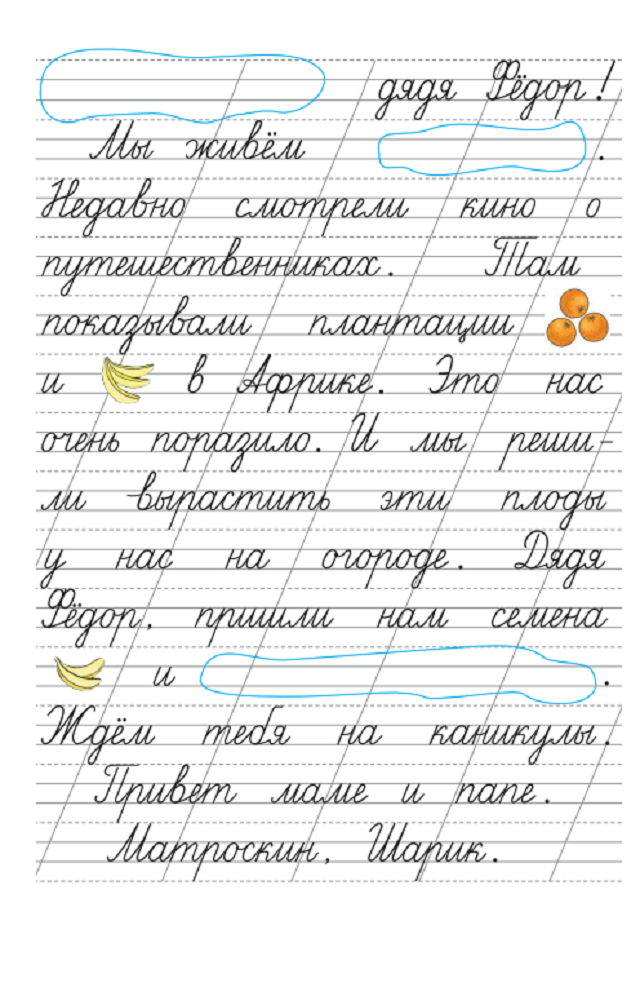 дядя Фёдор!
Мы живём .
Недавно смотрели кино о
путешественниках. Там
показывали плантации
и в Африке. Это нас
очень поразило. И мы реши-
ли вырастить эти плоды
у нас на огороде. Дядя
Фёдор, пришли нам семена
и .
Ждём тебя на каникулы.
Привет маме и папе.
Матроскин, Шарик.